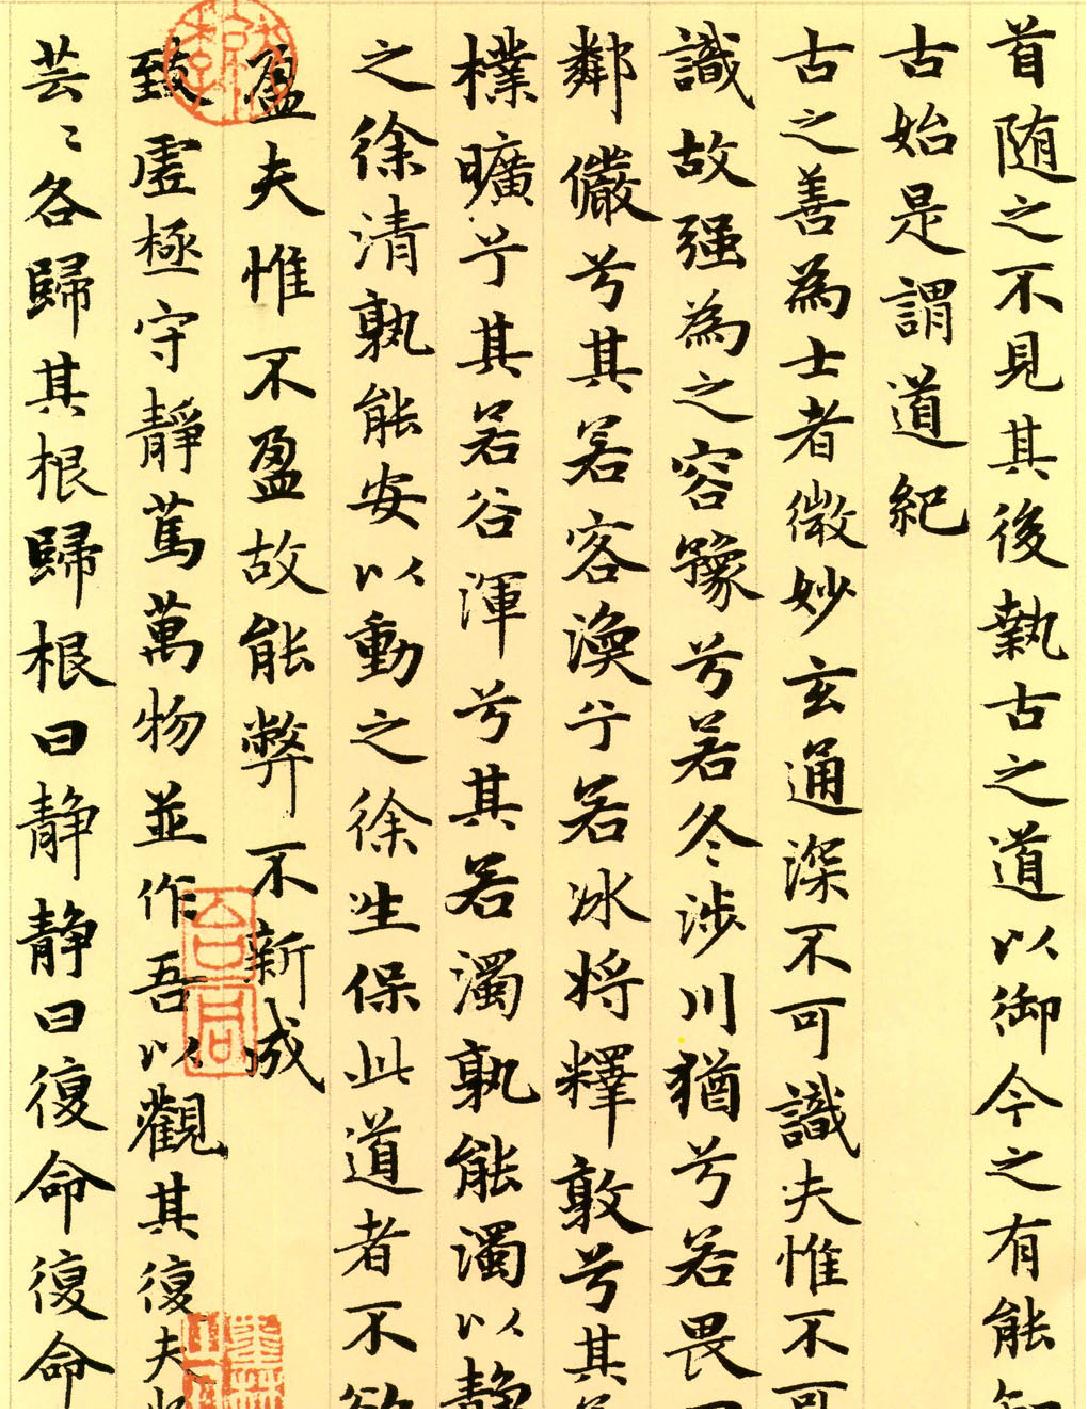 首随之不見其後執古之道以御今之有能知
古始是謂道紀
古之善為士者微妙玄通深不可識夫惟不可
識故强為之容豫兮若冬涉川猶兮若畏
鄰儼兮其若客渙兮若冰將釋敦兮其若
樸曠兮其若谷渾兮其若濁孰能濁以静
之徐清孰能安以動之徐生保此道者不欲
盈夫惟不盈故能弊不新成
致虛極守靜篤萬物並作吾以觀其復夫
芸〻各歸其根歸根曰静静曰復命復命